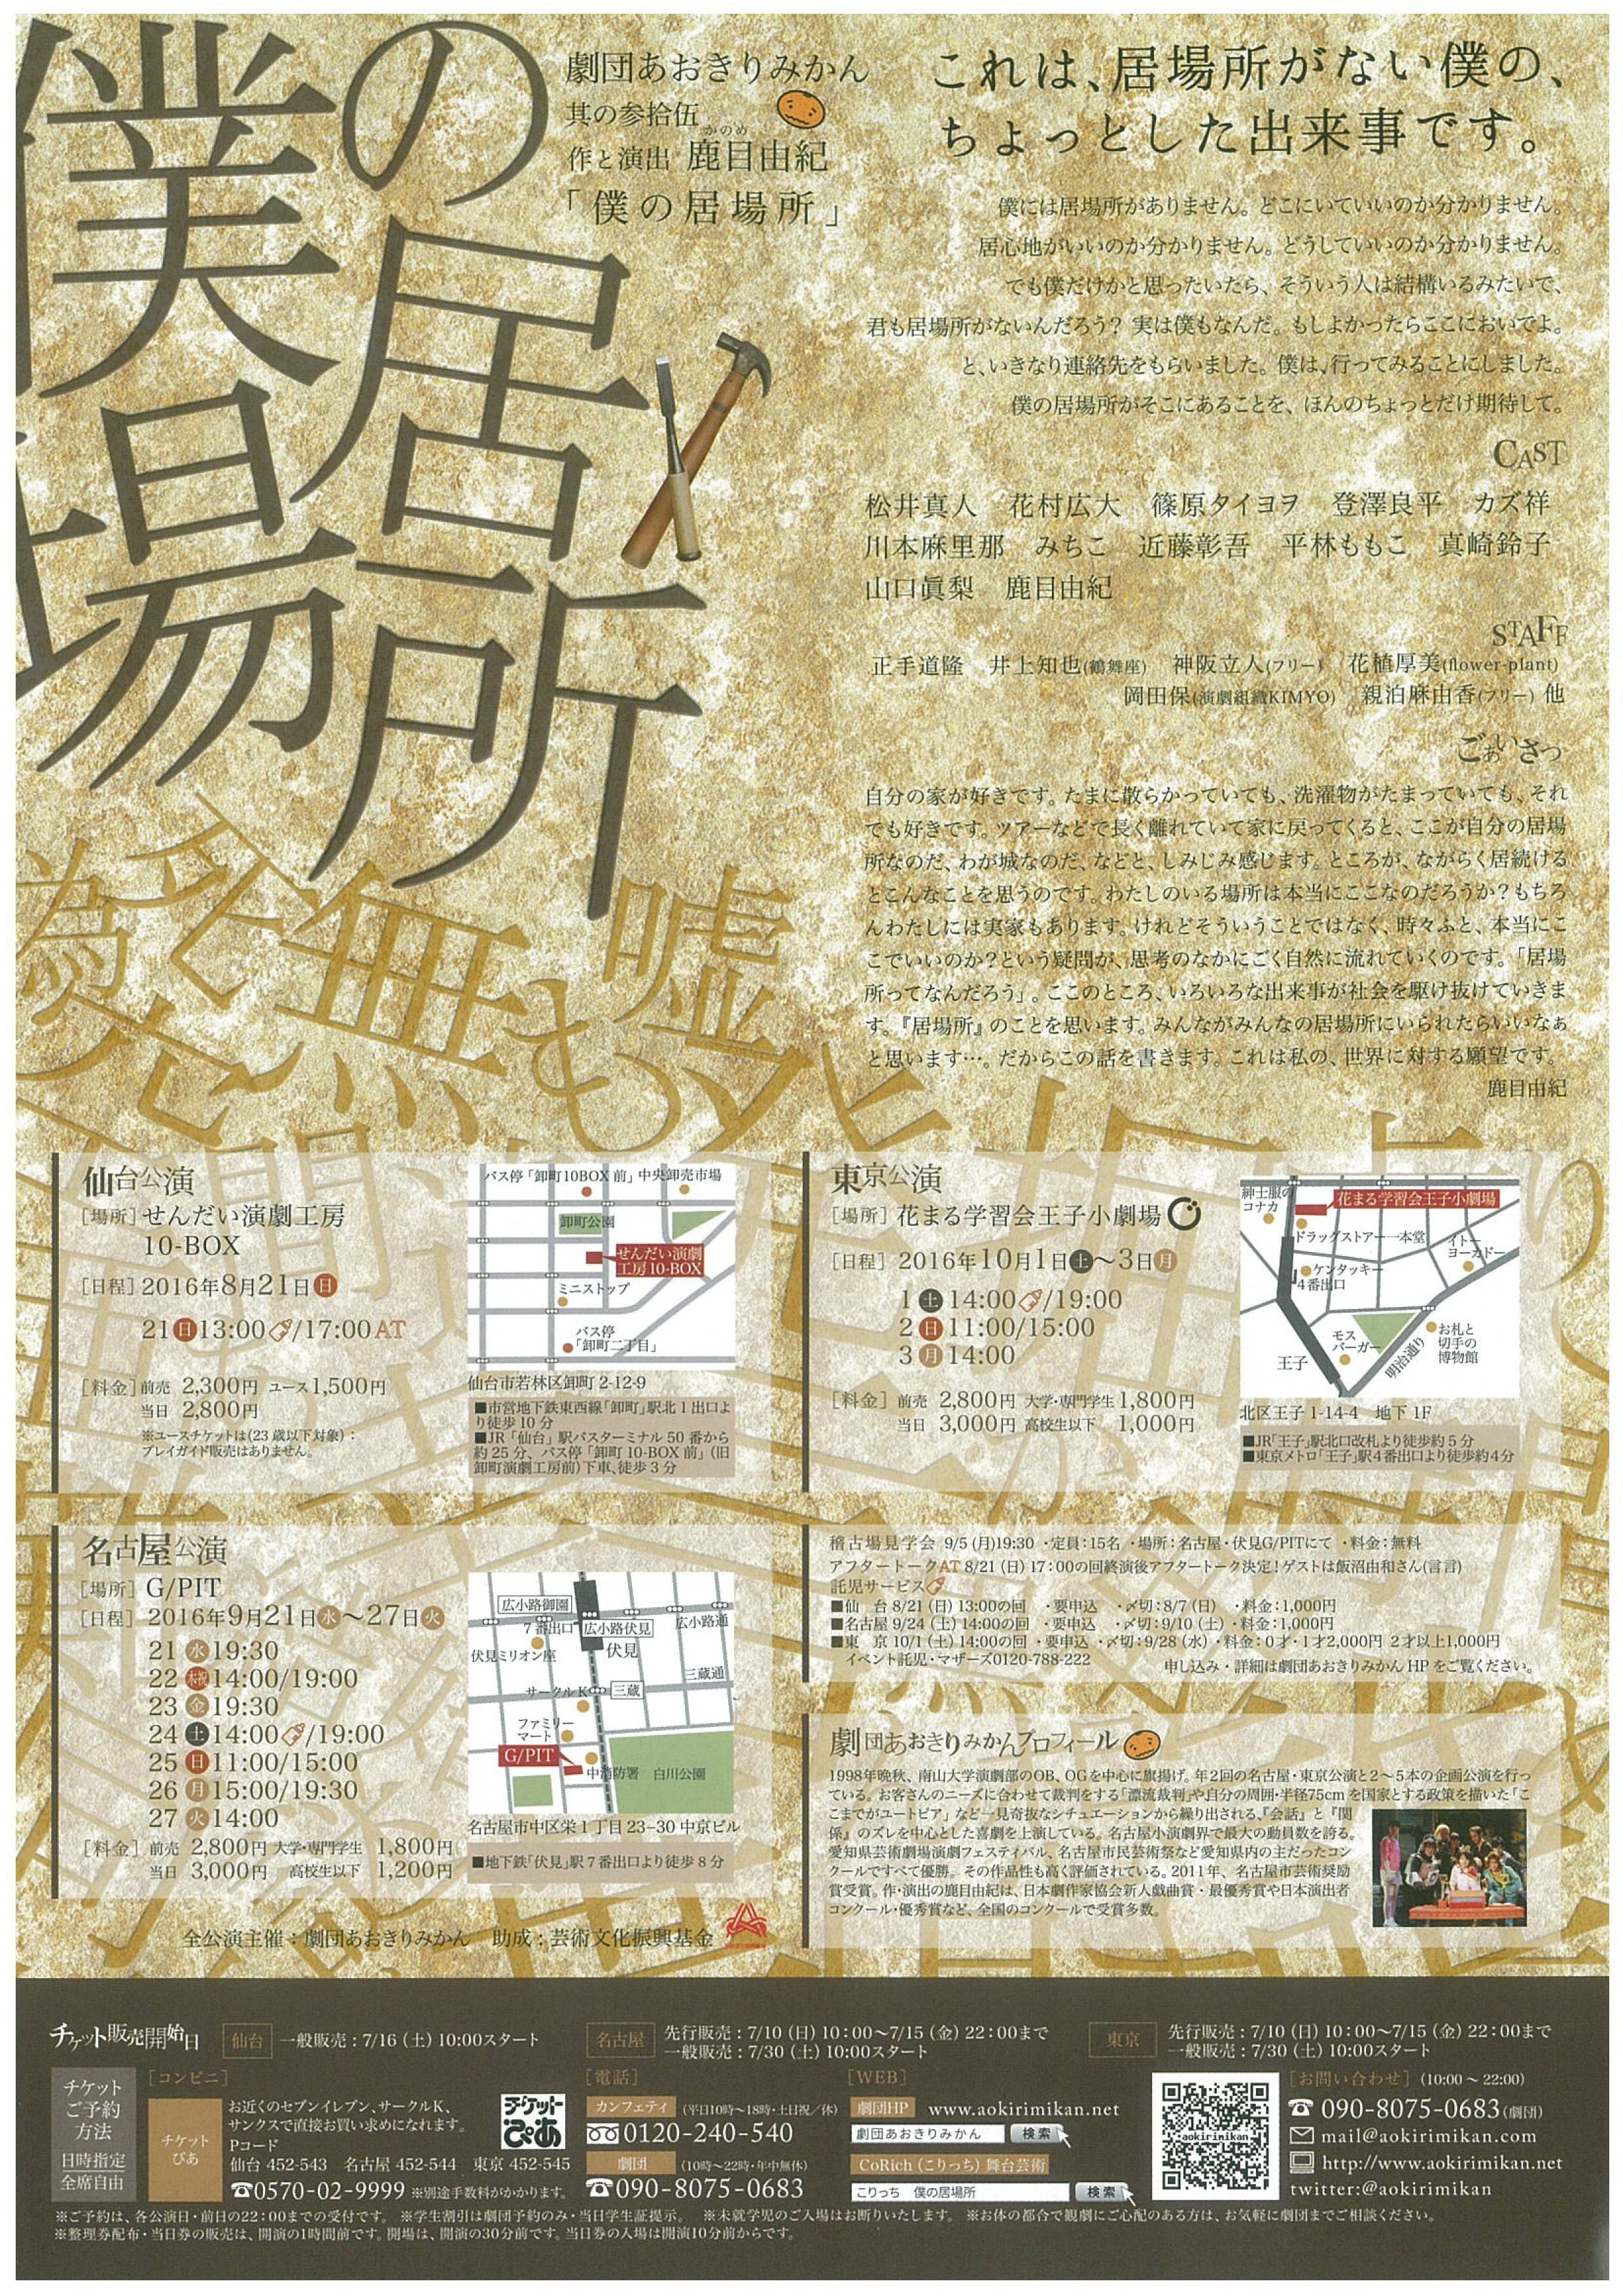 僕の居場所
劇団あおきりみかん
其の参拾伍
かのめ
作と演出 鹿目由紀
「僕の居場所」
これは、居場所がない僕の、
ちょっとした出来事です。
僕には居場所がありません。どこにいていいのか分かりません。
居心地がいいのか分かりません。どうしていいのか分かりません。
でも僕だけかと思ったいたら、そういう人は結構いるみたいで、
君も居場所がないんだろう? 実は僕もなんだ。もしよかったらここにおいでよ。
と、いきなり連絡先をもらいました。僕は、行ってみることにしました。
僕の居場所がそこにあることを、ほんのちょっとだけ期待して。
CAST
松井真人 花村広大 篠原タイヨヲ 登澤良平 カズ祥
川本麻里那 みちこ 近藤彰吾 平林ももこ 真崎鈴子
山口眞梨 鹿目由紀
STAFF
正手道隆 井上知也(鶴舞座) 神阪立人(フリー) 花植厚美(flower-plant)
岡田保(演劇組織KIMYO) 親泊麻由香(フリー) 他
ごあいさつ
自分の家が好きです。たまに散らかっていても、洗濯物がたまっていても、それ
でも好きです。ツアーなどで長く離れていて家に戻ってくると、ここが自分の居場
所なのだ、わが城なのだ、などと、しみじみ感じます。ところが、ながらく居続ける
とこんなことを思うのです。わたしのいる場所は本当にここなのだろうか?もちろ
んわたしには実家もあります。けれどそういうことではなく、時々ふと、本当にこ
こでいいのか?という疑問が、思考のなかにごく自然に流れていくのです。「居場
所ってなんだろう」。ここのところ、いろいろな出来事が社会を駆け抜けていきま
す。『居場所』のことを思います。みんながみんなの居場所にいられたらいいなぁ
と思います…。だからこの話を書きます。これは私の、世界に対する願望です。
鹿目由紀
仙台公演
[場所] せんだい演劇工房
10-BOX
[日程] 2016年8月21日日
21日13:00/17:00AT
[料金] 前売 2,300円 ユース1,500円
当日 2,800円
※ユースチケットは(23歳以下対象):
プレイガイド販売はありません。
バス停「卸町10BOX前」 中央卸売市場
卸町公園
せんだい演劇
工房10-BOX
ミニストップ
バス停
「卸町二丁目」
仙台市若林区卸町 2-12-9
■市営地下鉄東西線「卸町」駅北1出口よ
り徒歩10分
■JR「仙台」駅バスターミナル50番から
約25分、バス停「卸町10-BOX前」(旧
卸町演劇工房前)下車、徒歩3分
東京公演
[場所] 花まる学習会王子小劇場
[日程] 2016年10月1日土~3日月
1土14:00/19:00
2日11:00/15:00
3月14:00
[料金] 前売 2,800円 大学・専門学生 1,800円
当日 3,000円 高校生以下 1,000円
紳士服の
コナカ
花まる学習会王子小劇場
ドラッグストアー一本堂
イトー
ヨーカドー
ケンタッキー
4番出口
モス
バーガー
お札と
切手の
博物館
王子
明治通り
北区王子 1-14-4 地下 1F
■JR「王子」駅北口改札より徒歩約5分
■東京メトロ「王子」駅4番出口より徒歩約4分
名古屋公演
[場所] G/PIT
[日程] 2016年9月21日水~27日火
21水19:30
22木祝14:00/19:00
23金19:30
24土14:00/19:00
25日11:00/15:00
26月15:00/19:30
27火14:00
[料金] 前売 2,800円 大学・専門学生 1,800円
当日 3,000円 高校生以下 1,200円
広小路御園
7番出口
広小路伏見
広小路通
伏見ミリオン座
伏見
三蔵通
サークルK
三蔵
ファミリー
マート
G/PIT
中消防署
白川公園
名古屋市中区栄1丁目23-30 中京ビル
■地下鉄「伏見」駅7番出口より徒歩8分
稽古場見学会 9/5(月)19:30 ・定員:15名 ・場所:名古屋・伏見G/PITにて ・料金:無料
アフタートークAT 8/21(日)17:00の回終演後アフタートーク決定!ゲストは飯沼由和さん(言言)
託児サービス
■仙 台 8/21(日)13:00の回 ・要申込 ・〆切:8/7(日) ・料金:1,000円
■名古屋 9/24(土)14:00の回 ・要申込 ・〆切:9/10(土)・料金:1,000円
■東 京 10/1(土)14:00の回 ・要申込 ・〆切:9/28(水)・料金:0才・1才2,000円 2才以上1,000円
イベント託児・マザーズ0120-788-222 申し込み・詳細は劇団あおきりみかん HP をご覧ください。
劇団あおきりみかんプロフィール
1998年晩秋、南山大学演劇部のOB、OGを中心に旗揚げ。年2回の名古屋・東京公演と2~5本の企画公演を行っ
ている。お客さんのニーズに合わせて裁判をする「漂流裁判」や自分の周囲・半径75cmを国家とする政策を描いた「こ
こまでがユートピア」など一見奇抜なシチュエーションから繰り出される、『会話』と『関
係』のズレを中心とした喜劇を上演している。名古屋小演劇界で最大の動員数を誇る。
愛知県芸術劇場演劇フェスティバル、名古屋市民芸術祭など愛知県内の主だったコン
クールですべて優勝。その作品性も高く評価されている。2011年、名古屋市芸術奨励
賞受賞。作・演出の鹿目由紀は、日本劇作家協会新人戯曲賞・最優秀賞や日本演出者
コンクール・優秀賞など、全国のコンクールで受賞多数。
全公演主催:劇団あおきりみかん 助成:芸術文化振興基金
チケット販売開始日
仙台 一般販売:7/16(土)10:00スタート
名古屋 先行販売:7/10(日)10:00~7/15(金)22:00まで
一般販売:7/30(土)10:00スタート
東京 先行販売:7/10(日)10:00~7/15(金)22:00まで
一般販売:7/30(土)10:00スタート
チケット
ご予約
方法
日時指定
全席自由
[コンビニ]
チケット
ぴあ
お近くのセブンイレブン、サークルK、
サンクスで直接お買い求めになれます。
Pコード
仙台 452-543 名古屋 452-544 東京 452-545
☎0570-02-9999 ※別途手数料がかかります。
チケットぴあ
[電話]
カンフェティ (平日10時~18時・土日祝/休)
0120-240-540
劇団 (10時~22時・年中無休)
☎090-8075-0683
[WEB]
劇団HP www.aokirimikan.net
劇団あおきりみかん 検索
CoRich(こりっち)舞台芸術
こりっち 僕の居場所 検索
aokirimikan
[お問い合わせ](10:00~22:00)
☎090-8075-0683(劇団)
mail@aokirimikan.com
http://www.aokirimikan.net
twitter:@aokirimikan
※ご予約は、各公演日・前日の22:00までの受付です。 ※学生割引は劇団予約のみ・当日学生証提示。 ※未就学児のご入場はお断りいたします。 ※お体の都合で観劇にご心配のある方は、お気軽に劇団までご相談ください。
※整理券配布・当日券の販売は、開演の1時間前です。開場は、開演の30分前です。当日券の入場は開演10分前からです。